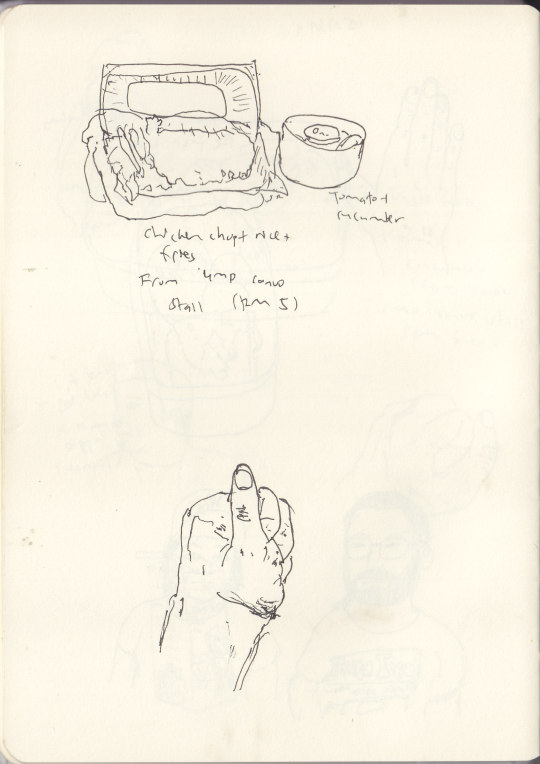 Tomato +
cucumber
chicken chop + rice +
fries
From
stall (RM 5)